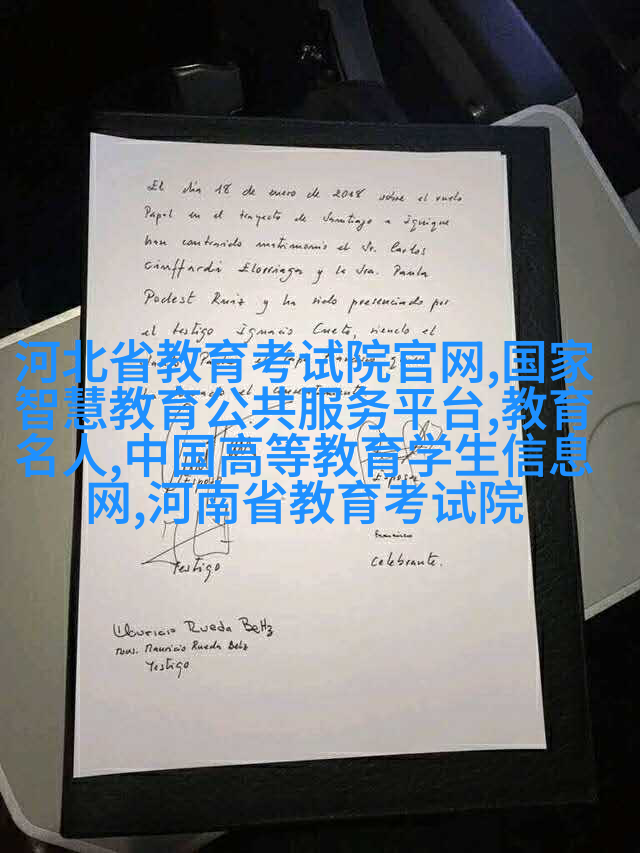 El día 18 de enero de 2018 sobre el vuelo
Papal en el trayecto de Santiago a Iquique
han contraido matrimonio el Sr. Carlos
Ciuffardi Elorriaga y la Sra. Paula
Podest Ruiz y ha sido presenciado por
el testigo Ignacio Cueto, siendo el
河北省教育考试院官网,国家
智慧教育公共服务平台,教育
名人,中国高等教育学生信息
网,河南省教育考试院
Esposo
Esposa
Franciscus
Testigo
Celebrante.
Mauricio Rueda Beltz
Mons. Mauricio Rueda Beltz
Testigo